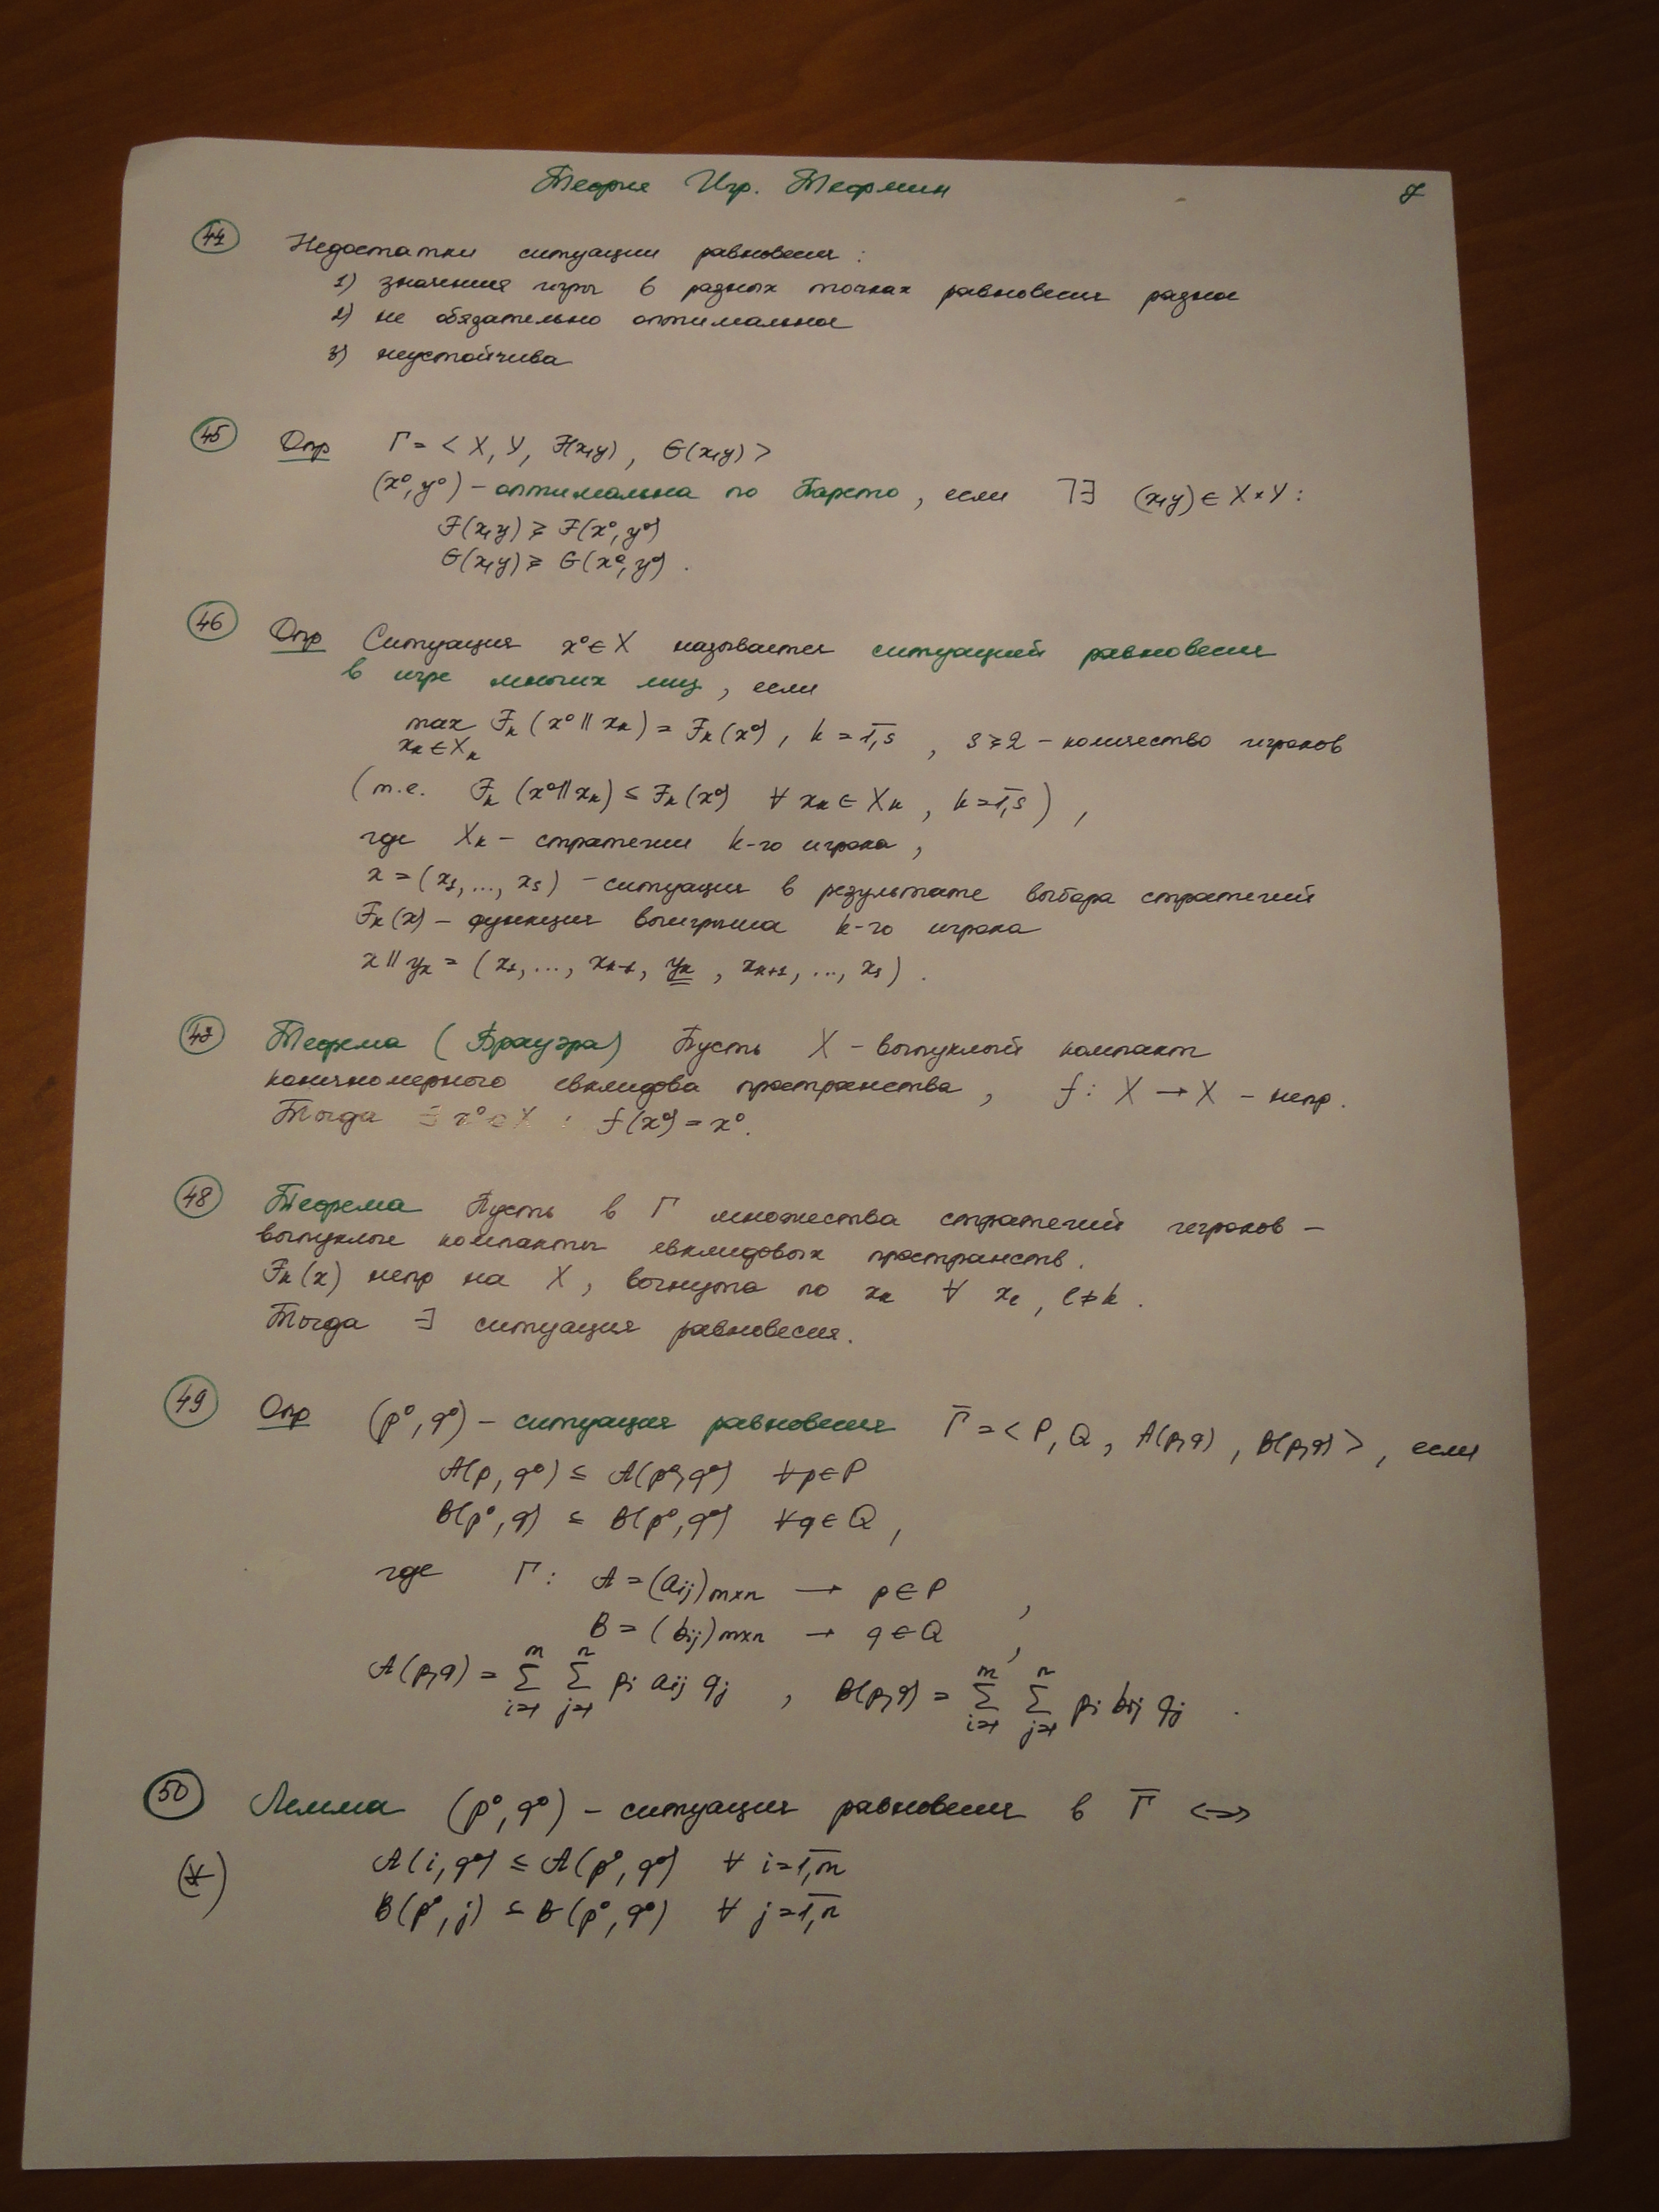 Теория Игр. Теормин 7
44 Недостатки ситуации равновесия:
1) значения игры в разных точках равновесия разное
2) не обязательно оптимальное
3) неустойчива
45 Опр Γ = < X, Y, F(x,y), G(x,y) >
(x⁰, y⁰) – оптимальна по Парето, если ¬∃ (x,y) ∈ X×Y:
F(x,y) ≥ F(x⁰, y⁰)
G(x,y) ≥ G(x⁰, y⁰).
46 Опр Ситуация x⁰ ∈ X называется ситуацией равновесия
в игре многих лиц, если
max F_k (x⁰ || x_k) = F_k (x⁰), k = 1,s, s ≥ 2 – количество игроков
x_k ∈ X_k
(т.е. F_k (x⁰||x_k) ≤ F_k (x⁰) ∀ x_k ∈ X_k, k = 1,s),
где X_k – стратегии k-го игрока,
x = (x₁, ..., x_s) – ситуация в результате выбора стратегий
F_k(x) – функция выигрыша k-го игрока
x || y_k = (x₁, ..., x_{k-1}, y_k, x_{k+1}, ..., x_s).
47 Теорема (Брауэра) Пусть X – выпуклый компакт
конечномерного евклидова пространства, f: X → X – непр.
Тогда ∃ x⁰ ∈ X : f(x⁰) = x⁰.
48 Теорема Пусть в Γ множества стратегий игроков –
выпуклые компакты евклидовых пространств.
F_k(x) непр на X, вогнута по x_k ∀ x_l, l ≠ k.
Тогда ∃ ситуация равновесия.
49 Опр (p⁰, q⁰) – ситуация равновесия Γ̅ = < P, Q, A(p,q), B(p,q) >, если
A(p, q⁰) ≤ A(p⁰, q⁰) ∀p ∈ P
B(p⁰, q) ≤ B(p⁰, q⁰) ∀q ∈ Q,
где Γ: A = (a_ij)_{m×n} → p ∈ P,
B = (b_ij)_{m×n} → q ∈ Q,
A(p,q) = Σ_{i=1}^m Σ_{j=1}^n p_i a_ij q_j, B(p,q) = Σ_{i=1}^m Σ_{j=1}^n p_i b_ij q_j.
50 Лемма (p⁰, q⁰) – ситуация равновесия в Γ̅ <=>
(*) A(i, q⁰) ≤ A(p⁰, q⁰) ∀ i = 1,m
B(p⁰, j) ≤ B(p⁰, q⁰) ∀ j = 1,n